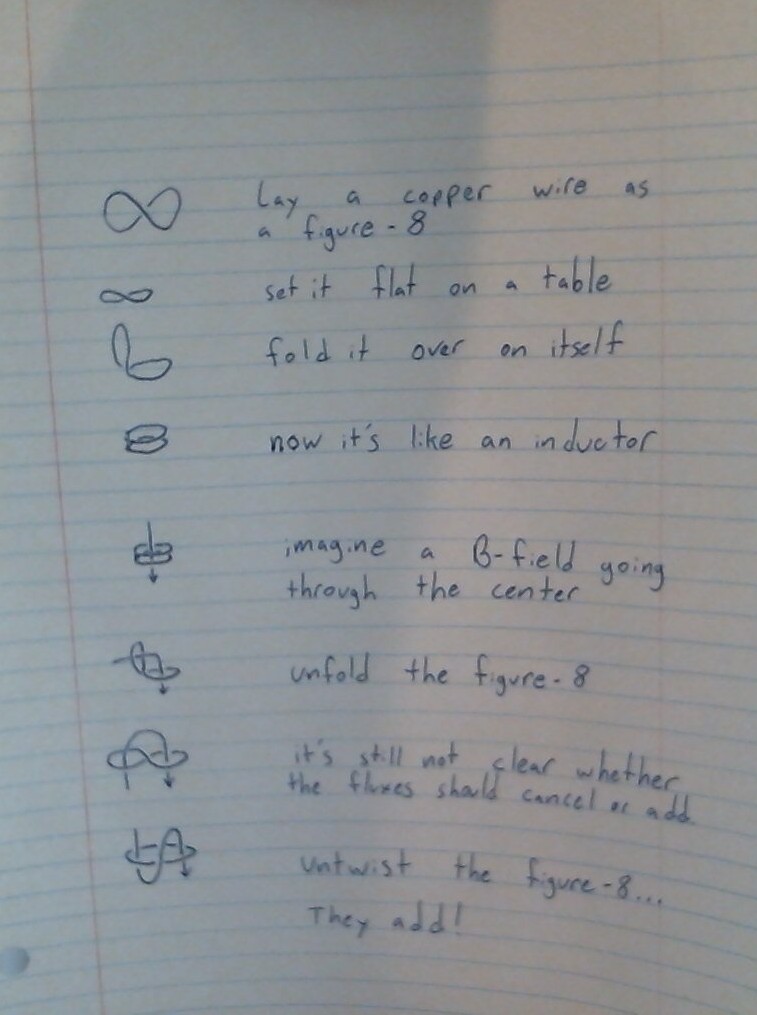 Lay a copper wire as
a figure-8
set it flat on a table
fold it over on itself
now it's like an inductor
imagine a B-field going
through the center
unfold the figure-8
it's still not clear whether
the fluxes should cancel or add
untwist the figure-8...
They add!